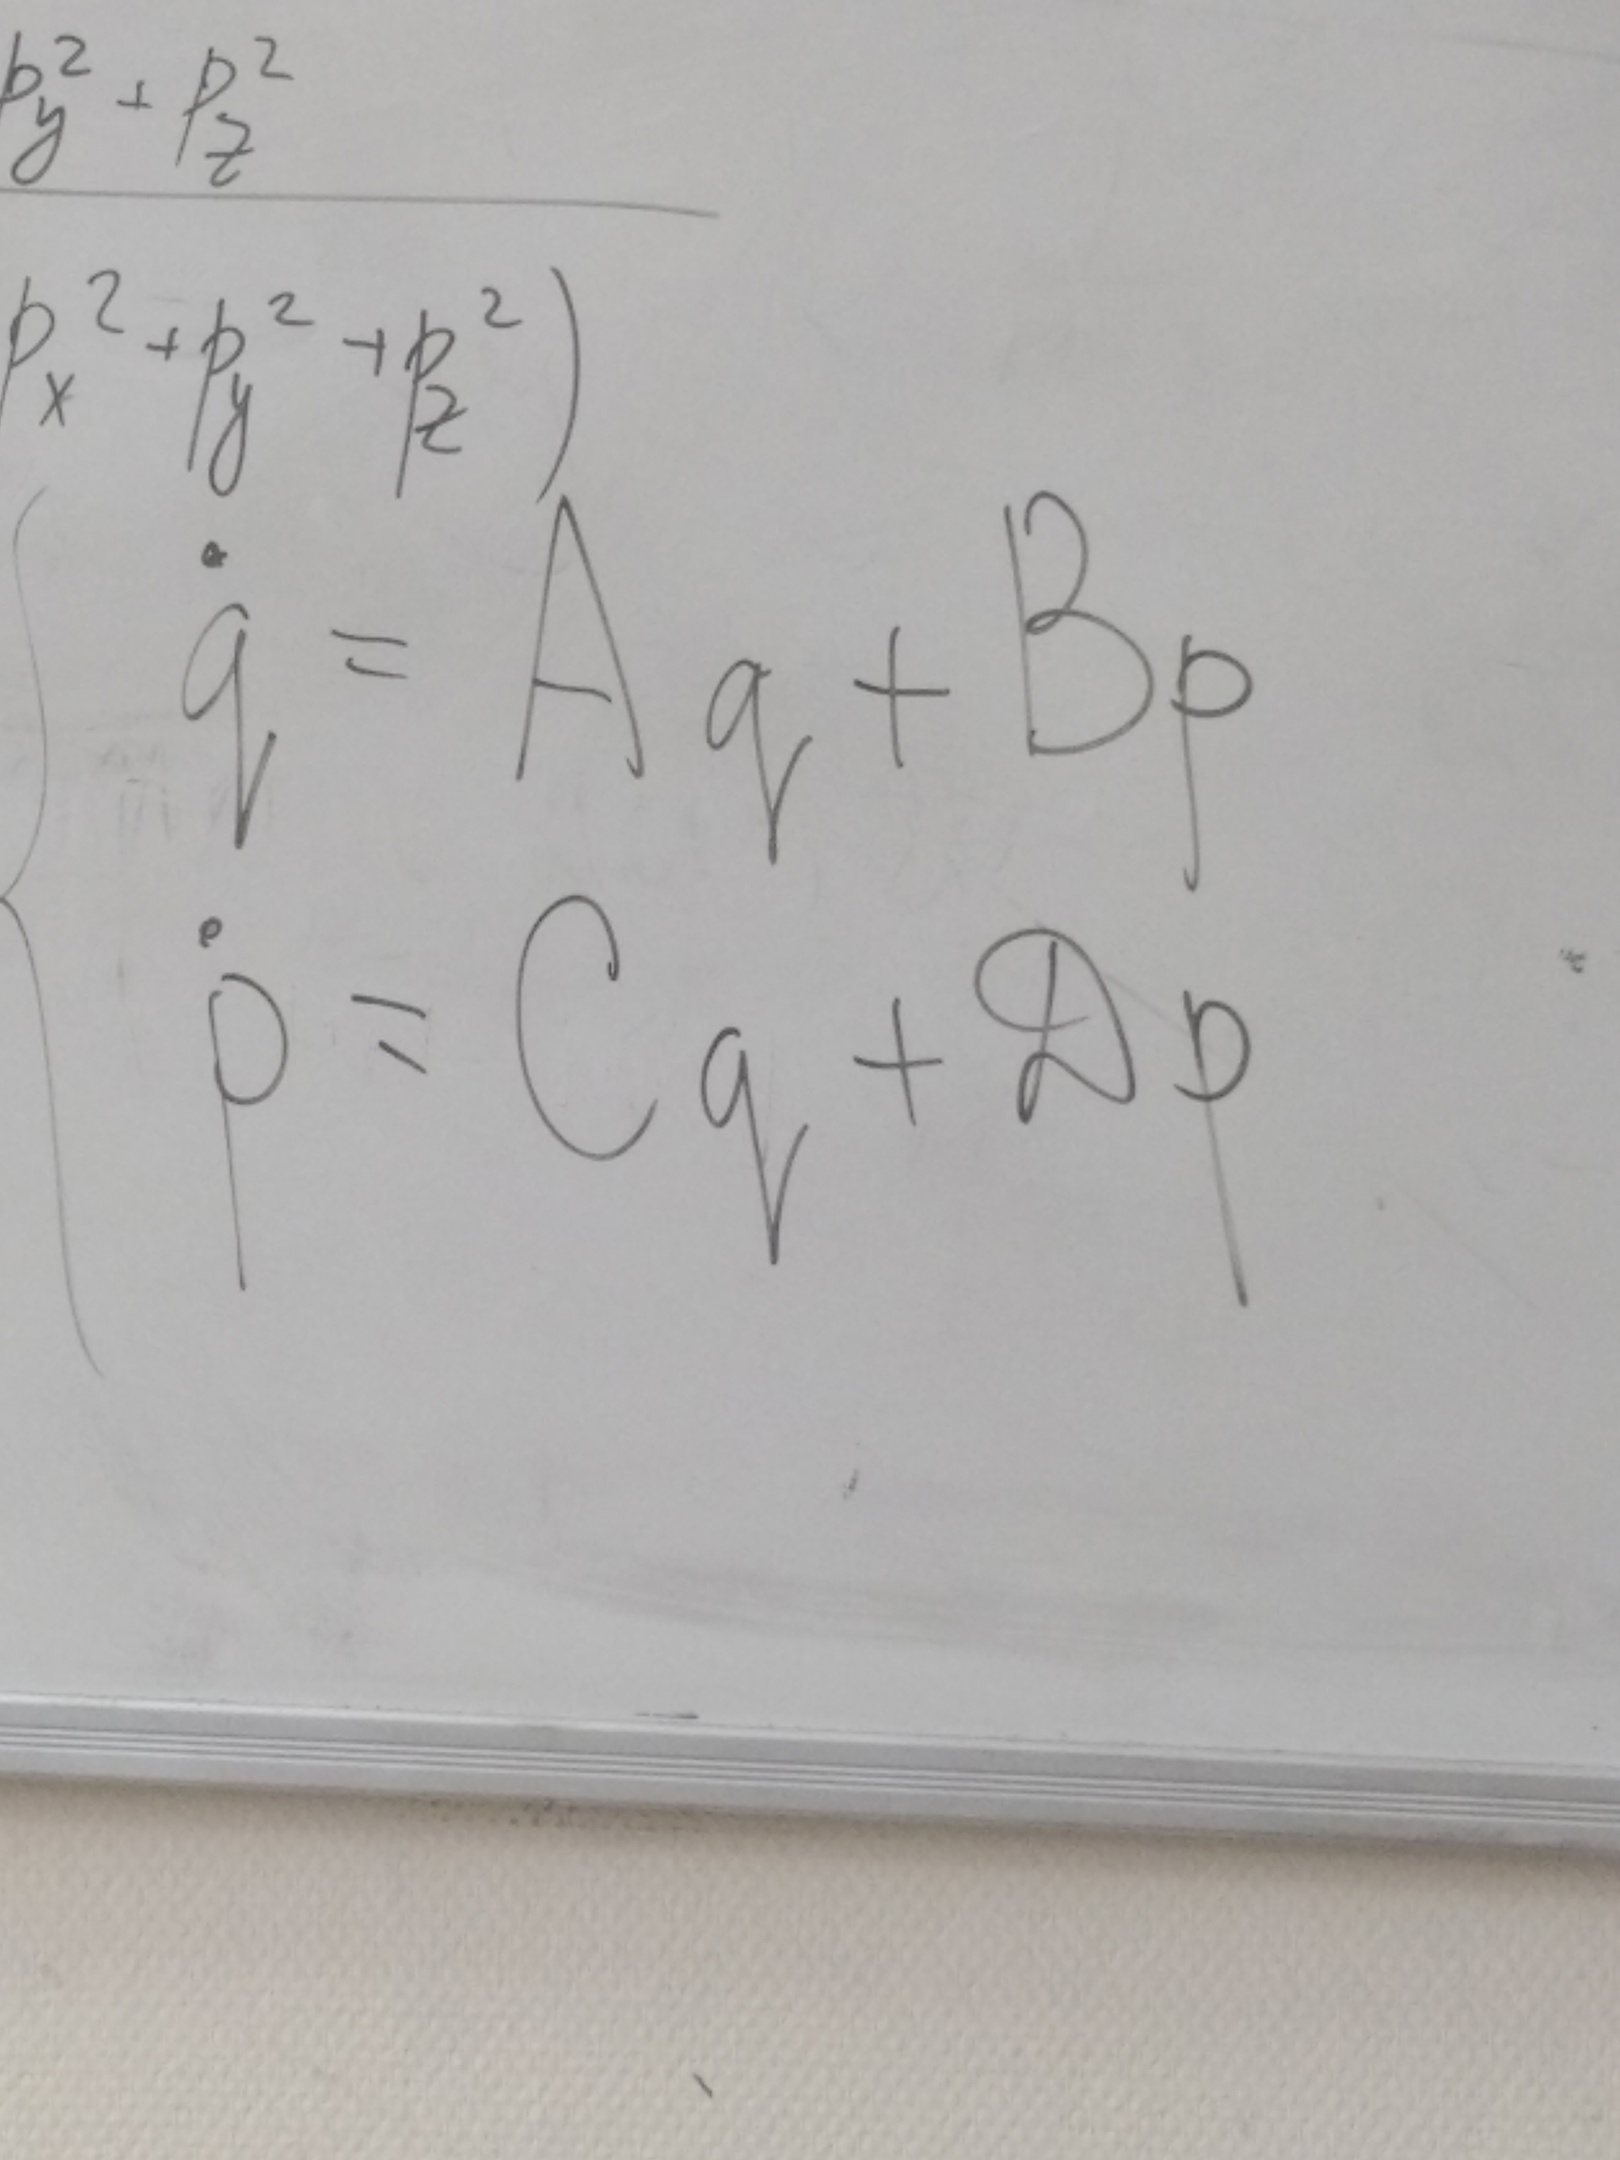 p_y² + p_z²
p_x² + p_y² + p_z²)
q̇ = Aq + Bp
ṗ = Cq + Dp